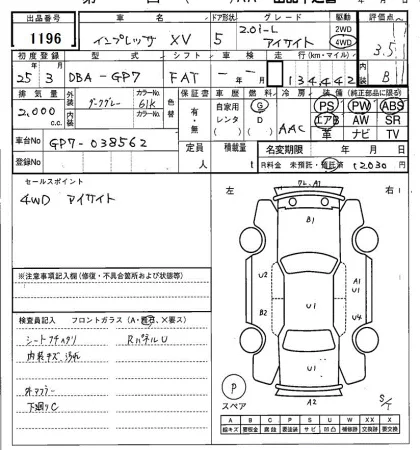 出品番号 車名 ドア形状 グレード 駆動 評価点
1196 インプレッサ XV 5 2.0i-L アイサイト 2WD 4WD 3.5
初度登録 型式 シフト 車検 走行(km・マイル) 内装
25 3 DBA-GP7 FAT - - 134,442 B
排気量 外装 カラーNo. 色替 保証書 車歴 燃料 冷房 装備(純正部品に限る)
2,000 c.c. ダークグレー 61K 有・無 自家用 レンタ G D AAC PS PW ABS
内装 カラーNo. エアB AW SR
車台No GP7-038562 革 ナビ TV
登録No 定員 人 積載量 t 名変期限 年 月 日
R料金 未預託・預託済 12030 円
セールスポイント
4WD アイサイト
左 右
フレ.A1
B1
U2 A1 U1
U1
B2 U4
U1
A2
P
スペア
※注意事項記入欄(修復・不具合箇所および状態等)
検査員記入 フロントガラス(A・飛石、×要ス)
シートフチヘタリ RパネルU
内装キズ、汚れ
下廻りC
A B C P S U W XX X
線キズ 要板金 腐蝕 要塗装 サビ 凹凸 補修跡 交換跡 要交換